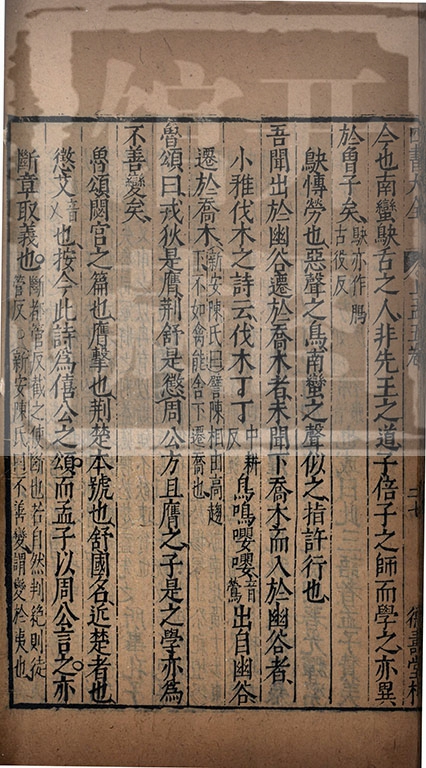 今也南蠻鴃舌之人非先王之道子倍子之師而學之亦異
於曾子矣鴃亦作鵙古役反
鴃慱勞也惡聲之鳥南蠻之聲似之指許行也
吾聞出於幽谷遷於喬木者未聞下喬木而入於幽谷者
小雅伐木之詩云伐木丁丁中耕反鳥鳴嚶嚶音鶯出自幽谷
遷於喬木新安陳氏曰譬陳相由高趨下不如禽能舍下遷喬也
魯頌曰戎狄是膺荆舒是懲周公方且膺之子是之學亦為
不善變矣
魯頌閟宫之篇也膺擊也荆楚本號也舒國名近楚者也
懲艾音乂也按今此詩為僖公之頌而孟子以周公言之亦
斷章取義也斷都管反截之使斷也若自然判絶則徒管反○新安陳氏曰不善變謂變於夷也